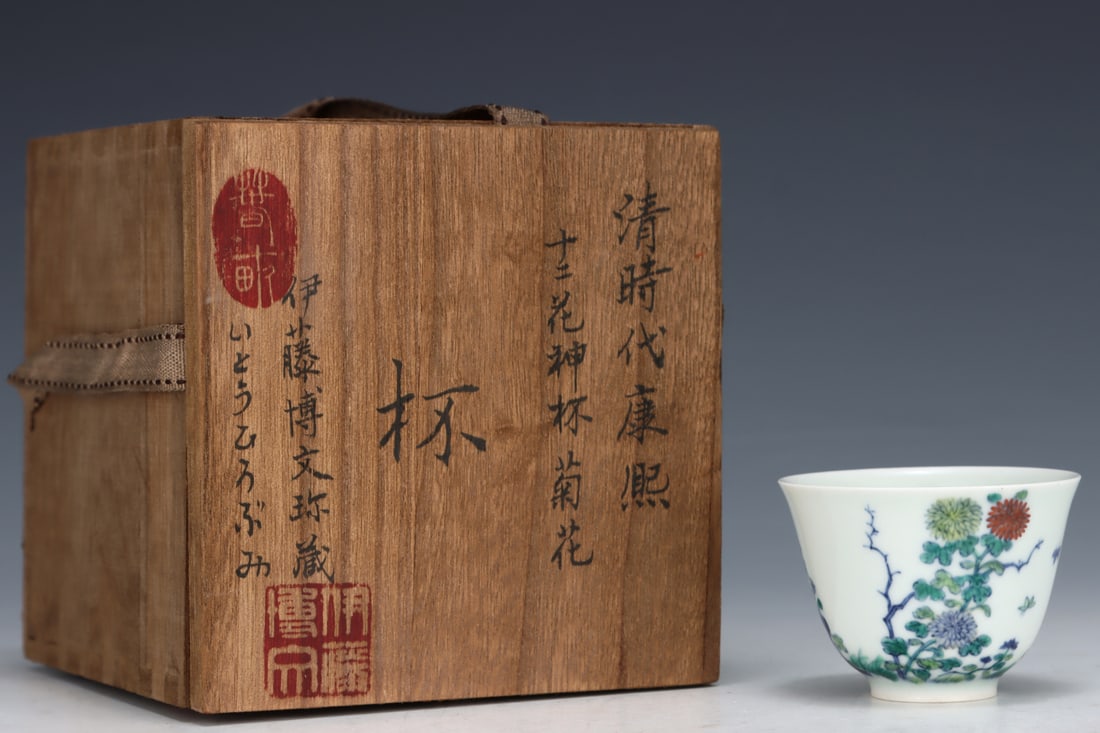 清時代康熙
十二花神杯菊花
杯
伊藤博文珎蔵
いとうひろぶみ
春畝
伊藤博文